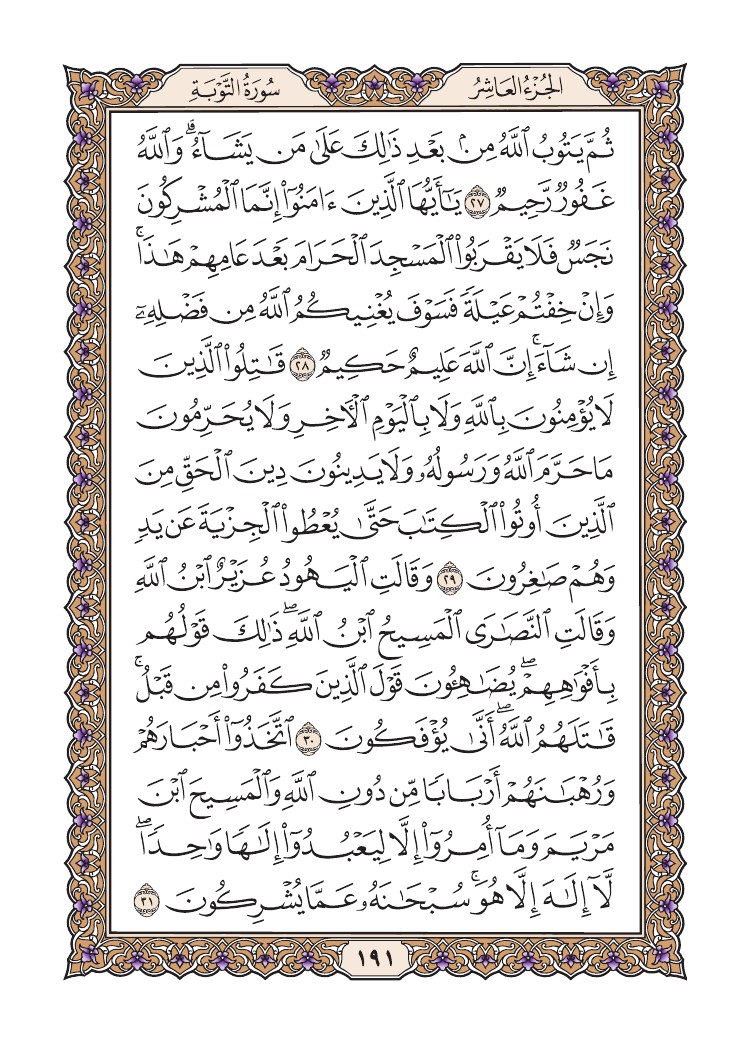 الجُزْءُ العَاشِرُ
سُورَةُ التَّوْبَةِ
ثُمَّ يَتُوبُ ٱللَّهُ مِنۢ بَعْدِ ذَٰلِكَ عَلَىٰ مَن يَشَآءُۗ وَٱللَّهُ
غَفُورٌ رَّحِيمٌ ٢٧ يَـٰٓأَيُّهَا ٱلَّذِينَ ءَامَنُوٓا۟ إِنَّمَا ٱلْمُشْرِكُونَ
نَجَسٌ فَلَا يَقْرَبُوا۟ ٱلْمَسْجِدَ ٱلْحَرَامَ بَعْدَ عَامِهِمْ هَـٰذَاۚ
وَإِنْ خِفْتُمْ عَيْلَةً فَسَوْفَ يُغْنِيكُمُ ٱللَّهُ مِن فَضْلِهِۦٓ
إِن شَآءَۚ إِنَّ ٱللَّهَ عَلِيمٌ حَكِيمٌ ٢٨ قَـٰتِلُوا۟ ٱلَّذِينَ
لَا يُؤْمِنُونَ بِٱللَّهِ وَلَا بِٱلْيَوْمِ ٱلْـَٔاخِرِ وَلَا يُحَرِّمُونَ
مَا حَرَّمَ ٱللَّهُ وَرَسُولُهُۥ وَلَا يَدِينُونَ دِينَ ٱلْحَقِّ مِنَ
ٱلَّذِينَ أُوتُوا۟ ٱلْكِتَـٰبَ حَتَّىٰ يُعْطُوا۟ ٱلْجِزْيَةَ عَن يَدٍ
وَهُمْ صَـٰغِرُونَ ٢٩ وَقَالَتِ ٱلْيَهُودُ عُزَيْرٌ ٱبْنُ ٱللَّهِ
وَقَالَتِ ٱلنَّصَـٰرَى ٱلْمَسِيحُ ٱبْنُ ٱللَّهِۖ ذَٰلِكَ قَوْلُهُم
بِأَفْوَٰهِهِمْۖ يُضَـٰهِـُٔونَ قَوْلَ ٱلَّذِينَ كَفَرُوا۟ مِن قَبْلُۚ
قَـٰتَلَهُمُ ٱللَّهُۖ أَنَّىٰ يُؤْفَكُونَ ٣٠ ٱتَّخَذُوٓا۟ أَحْبَارَهُمْ
وَرُهْبَـٰنَهُمْ أَرْبَابًا مِّن دُونِ ٱللَّهِ وَٱلْمَسِيحَ ٱبْنَ
مَرْيَمَ وَمَآ أُمِرُوٓا۟ إِلَّا لِيَعْبُدُوٓا۟ إِلَـٰهًا وَٰحِدًاۖ
لَّآ إِلَـٰهَ إِلَّا هُوَۚ سُبْحَـٰنَهُۥ عَمَّا يُشْرِكُونَ ٣١
١٩١